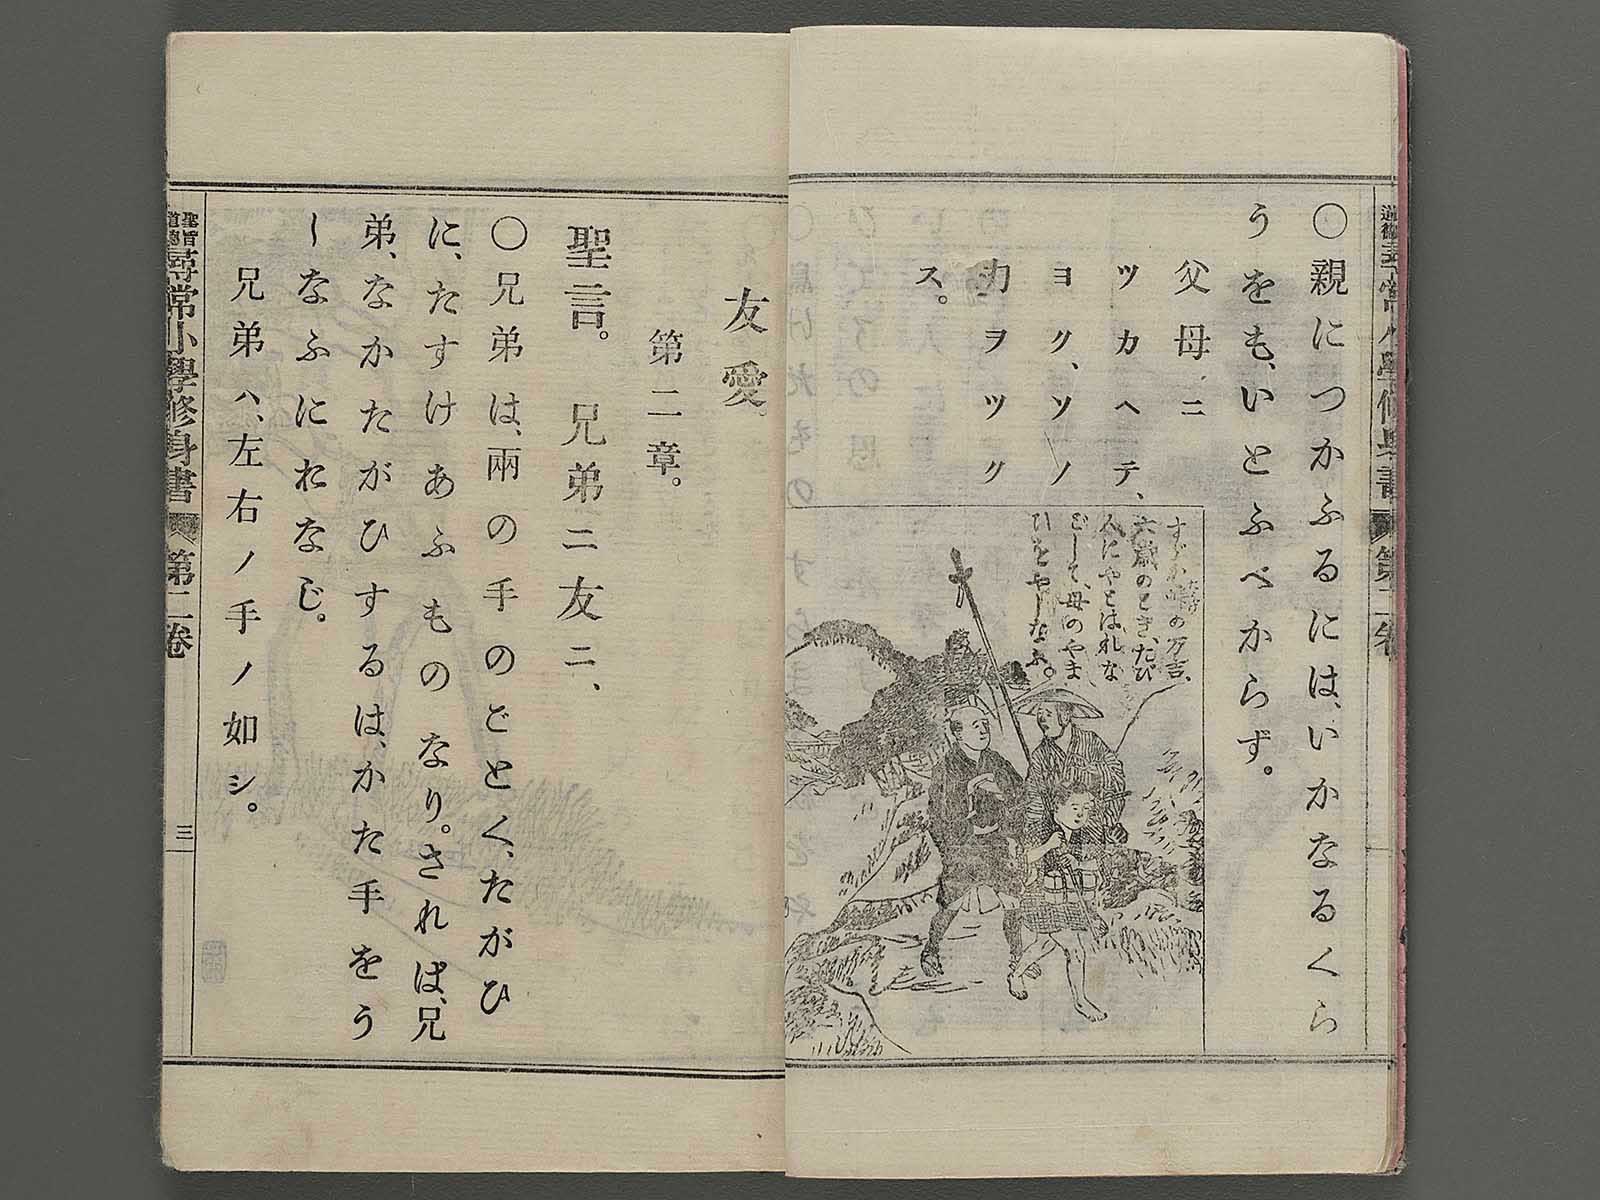 ○親につかふるには、いかなるくら
うをも、いとふべからず。
父母ニ
ツカヘテ、
ヨク、ソノ
力ヲツク
ス。
すゞが崎の万吉、
六歳のとき、たび
人にやとはれな
どして、母のやま
ひをやしなふ。
友愛。
第二章。
聖言。 兄弟ニ友ニ、
○兄弟は、兩の手のごとく、たがひ
に、たすけあふものなり。されば、兄
弟、なかたがひするは、かた手をう
しなふにおなじ。
兄弟ハ、左右ノ手ノ如シ。
尋常小學修身書 第二卷
三